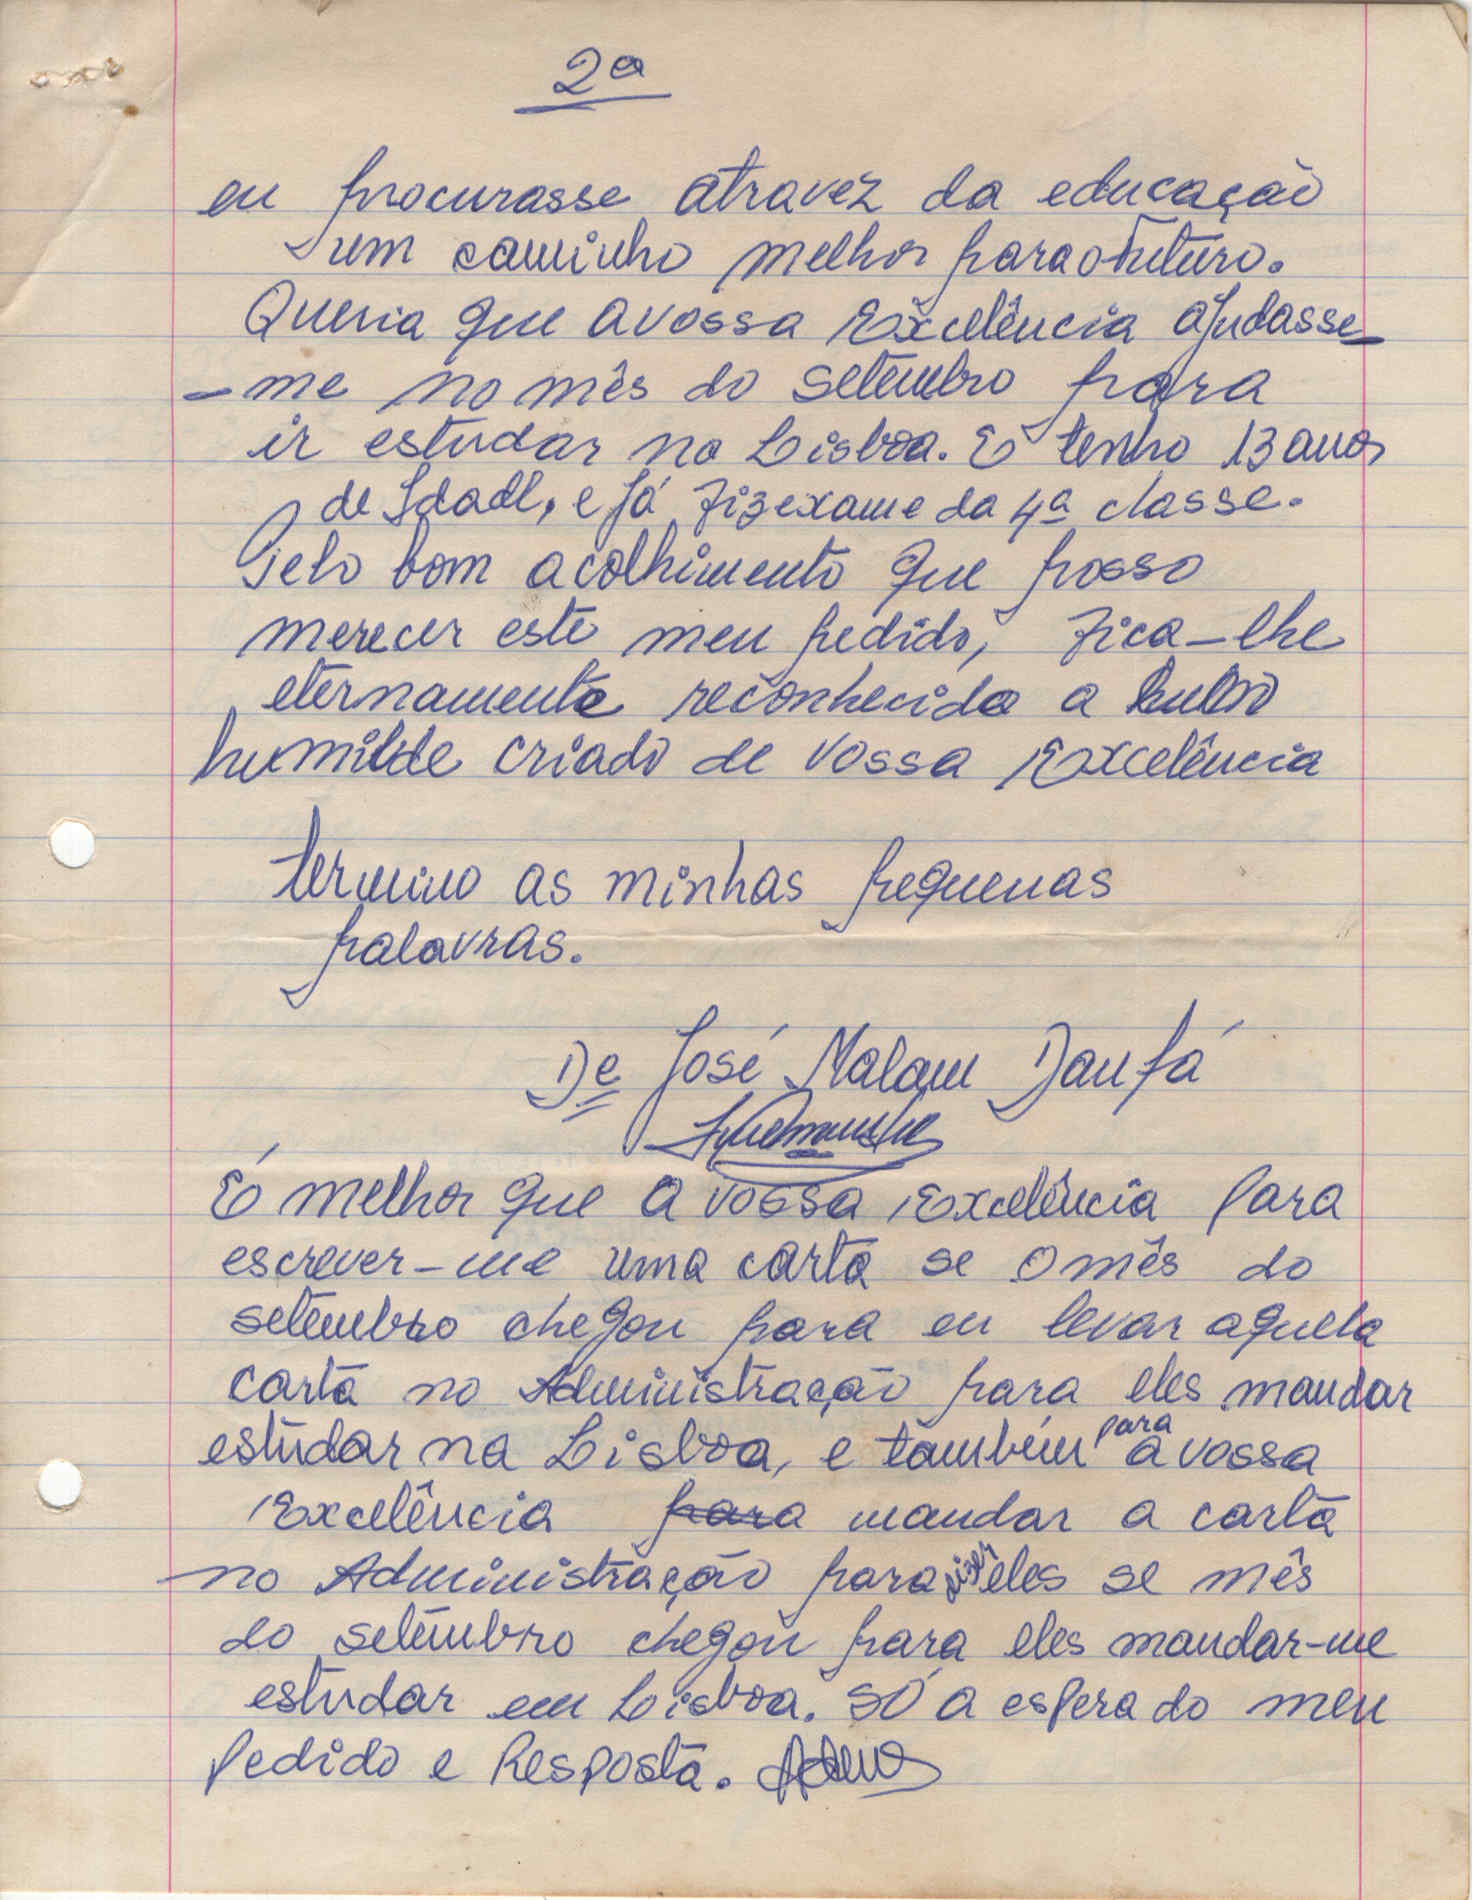 2ª
eu procurasse atravez da educação
um caminho melhor para o futuro.
Queria que a vossa Excelência ajudasse-
-me no mês do setembro para
ir estudar na Lisboa. E tenho 13 anos
de Idade, e já fiz exame da 4ª classe.
Pelo bom acolhimento que posso
merecer este meu pedido, fica-lhe
eternamente reconhecido a
humilde criado de vossa Excelência
termino as minhas pequenas
palavras.
De José Malam Danfá
É melhor que a vossa Excelência para
escrever-me uma carta se o mês do
setembro chegou para eu levar aquela
carta no Administração para eles mandar
estudar na Lisboa, e também para a vossa
Excelência para mandar a carta
no Administração para dizer eles se mês
do setembro chegou para eles mandar-me
estudar em Lisboa. Só a espera do meu
pedido e Resposta. Adeus